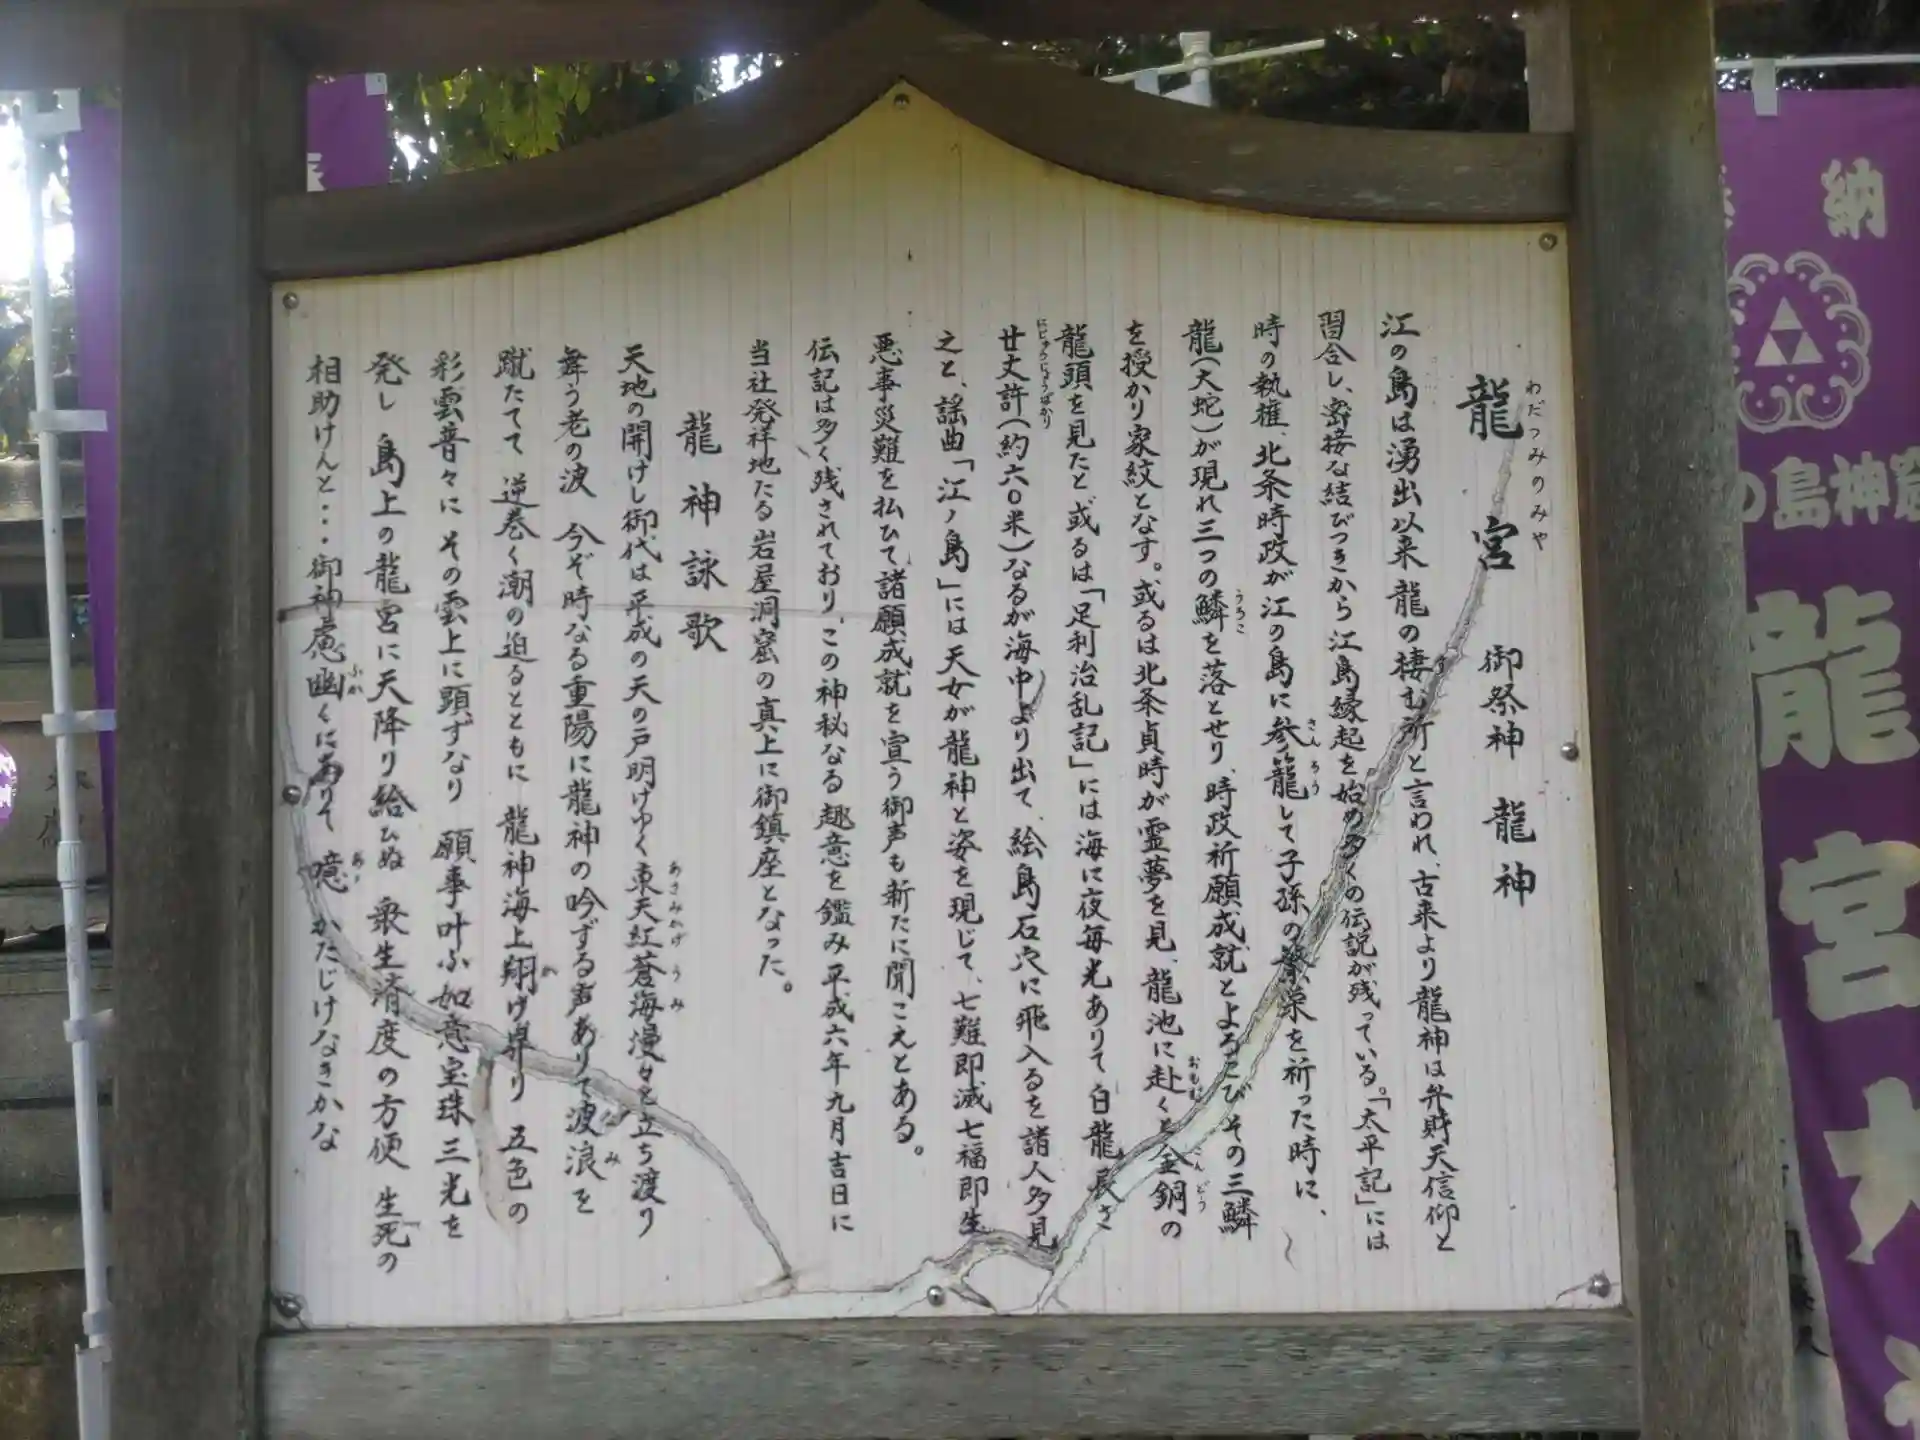 龍宮 御祭神 龍神
わだつみのみや
江の島は湧出以来龍の棲む所と言われ、古来より龍神は弁財天信仰と
習合し、密接な結びつきから江島縁起を始め多くの伝説が残っている。「太平記」には
時の執権、北条時政が江の島に参籠して子孫の繁栄を祈った時に、
さんろう
龍(大蛇)が現れ三つの鱗を落とせり、時政祈願成就とよろこびその三鱗
うろこ
を授かり家紋となす。或るは北条貞時が霊夢を見、龍池に赴くと金銅の
おもむ
こんどう
龍頭を見たと或るは「足利治乱記」には海に夜毎光ありて白龍長さ
廿丈許(約六〇米)なるが海中より出て、絵島石穴に飛入るを諸人多見
にじゅうじょうばかり
之と、謡曲「江ノ島」には天女が龍神と姿を現じて、七難即滅七福即生
悪事災難を払ひて諸願成就を宣う御声も新たに聞こえとある。
伝記は多く残されており、この神秘なる趣意を鑑み平成六年九月吉日に
当社発祥地たる岩屋洞窟の真上に御鎮座となった。
龍神詠歌
天地の開けし御代は平成の天の戸明けゆく東天紅蒼海漫々と立ち渡り
あさみかげ うみ
舞う老の波 今ぞ時なる重陽に龍神の吟ずる声ありて波浪を
なみ
蹴たてて 逆巻く潮の迫るとともに 龍神海上翔け昇り 五色の
か
彩雲普々に その雲上に頭ずなり 願事叶ふ如意宝珠三光を
発し 島上の龍宮に天降り給ひぬ 衆生済度の方便 生死の
相助けんと・・・御神慮幽くにありて 噫 かたじけなきかな
ふか
あゝ
奉納
の島神
龍宮大